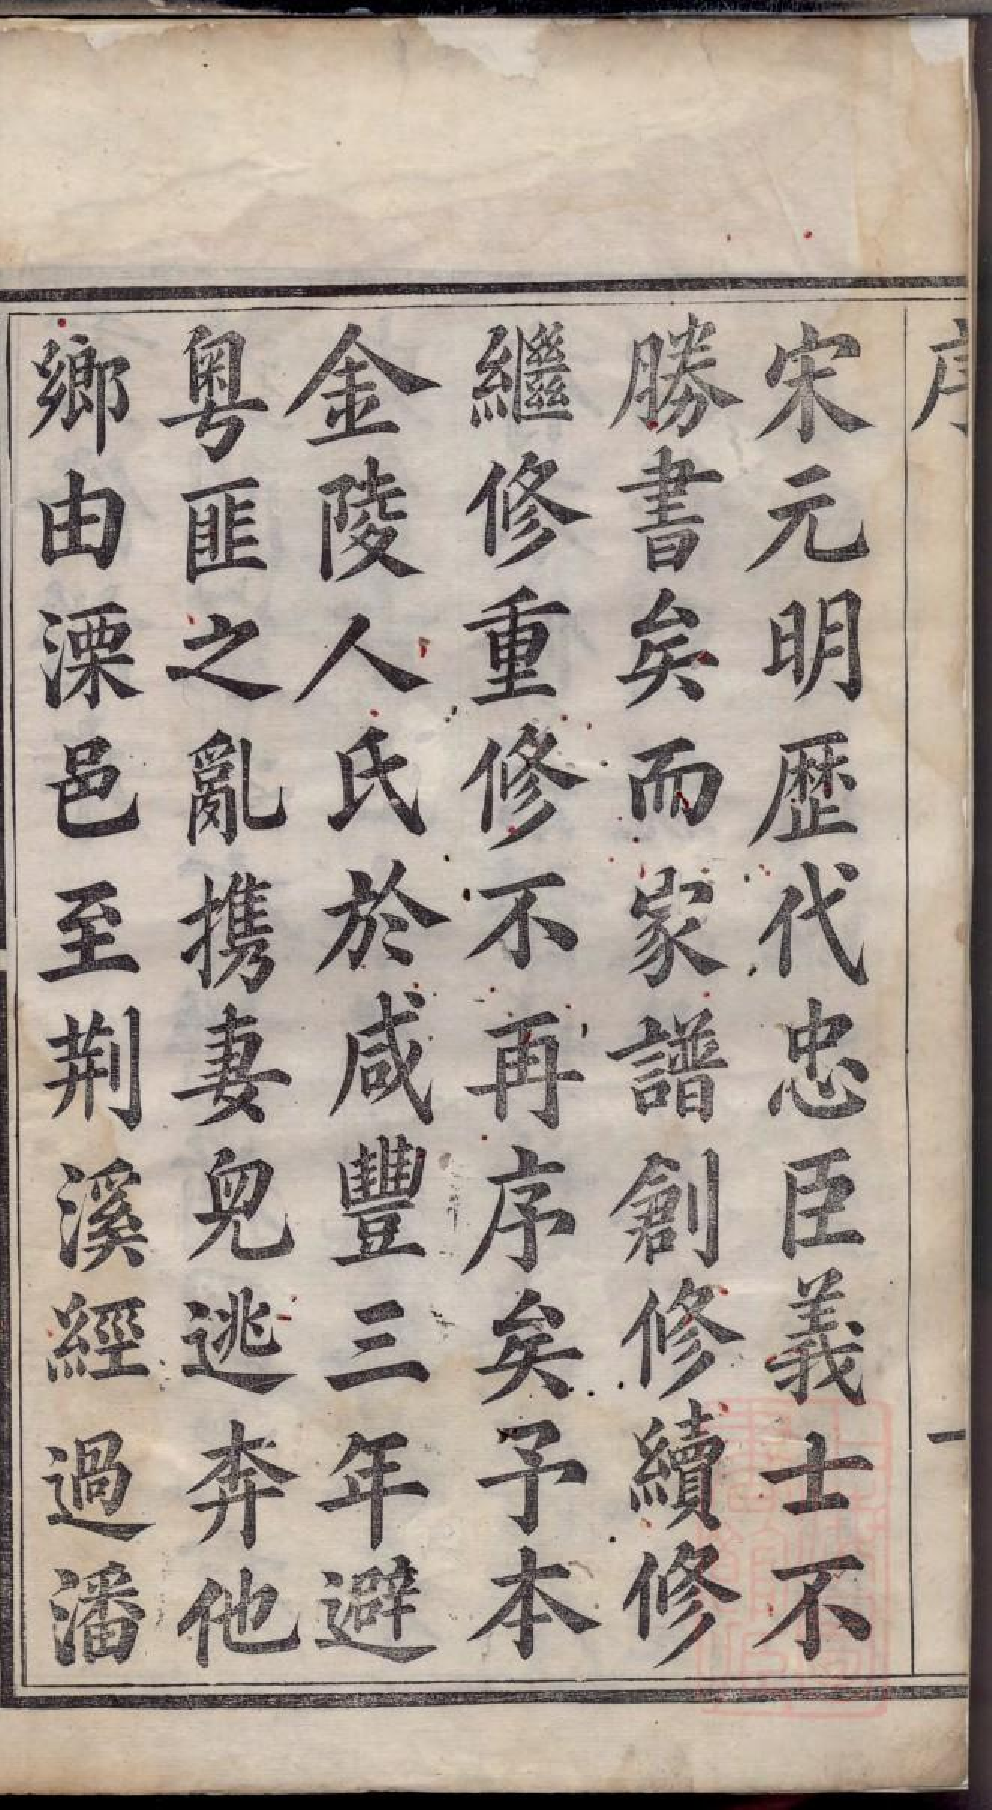 序 一
宋元明歷代忠臣義士不
勝書矣而家譜創修續修
繼修重修不再序矣予本
金陵人氏於咸豐三年避
粤匪之亂携妻兒逃奔他
鄉由溧邑至荆溪經過潘